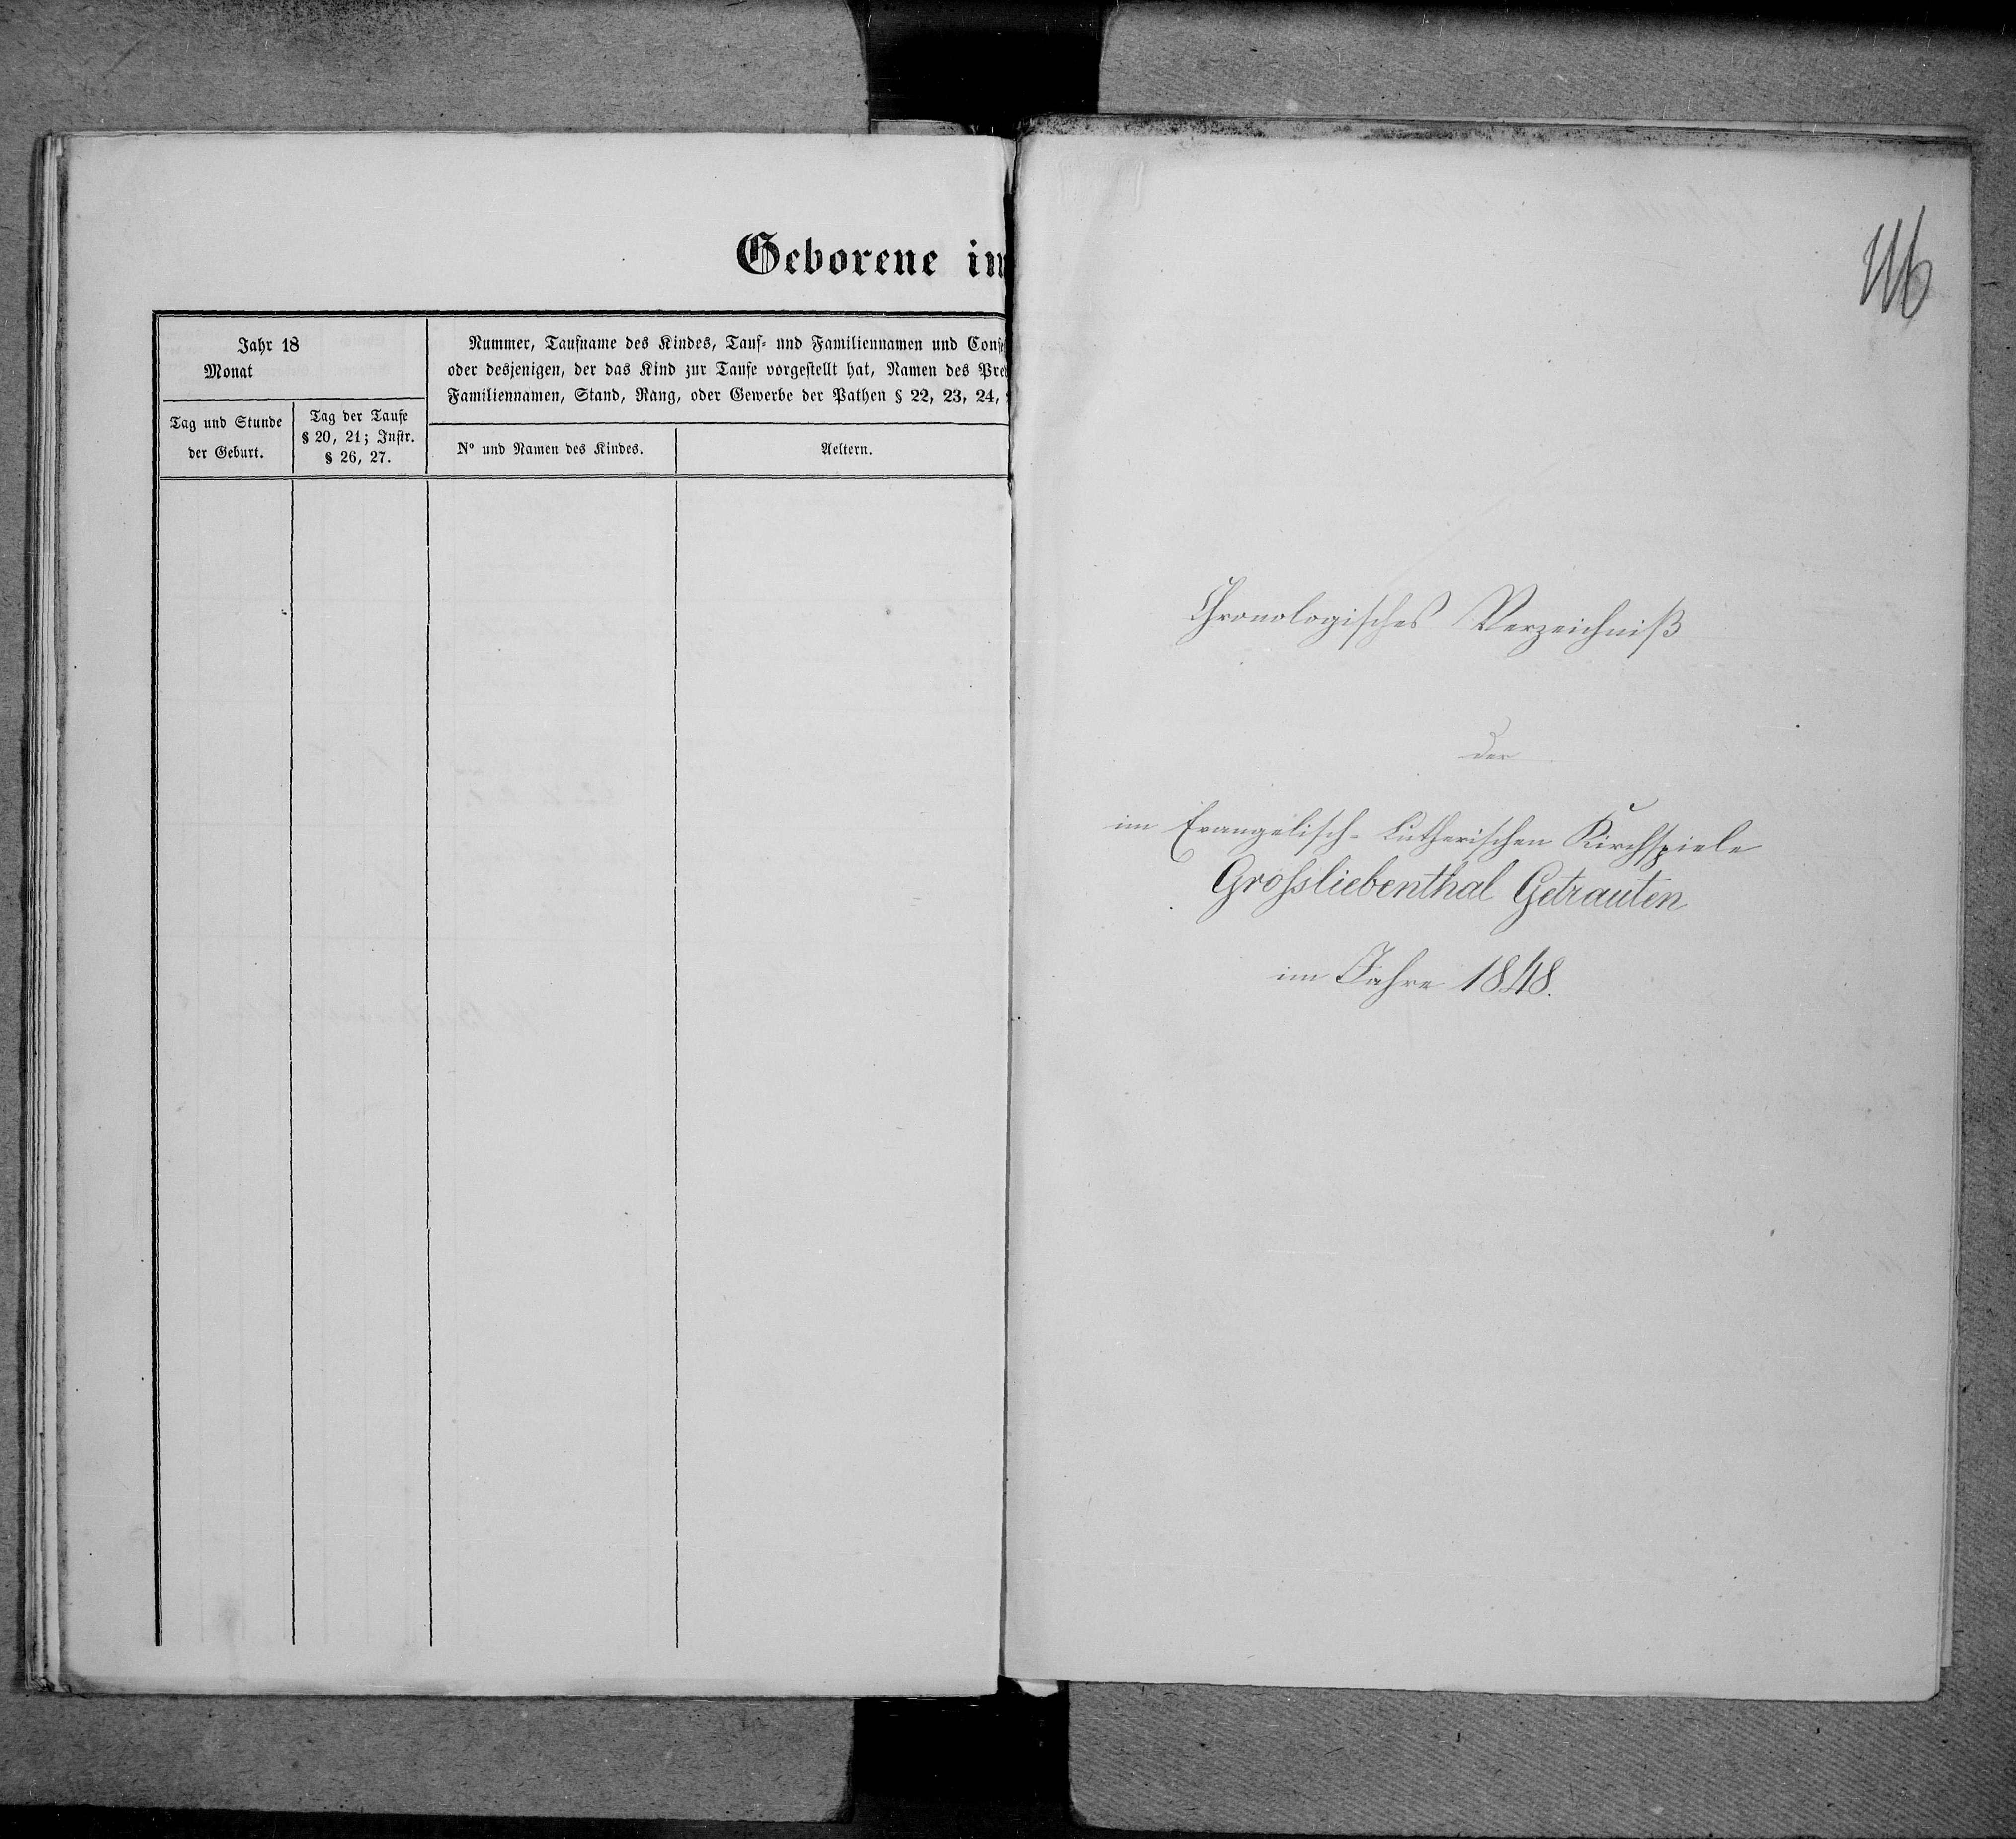 Geborene im
Jahr 18
Monat
Nummer, Taufname des Kindes, Tauf- und Familiennamen und
oder desjenigen, der das Kind zur Taufe vorgestellt hat, Namen des
Familiennamen, Stand, Rang, oder Gewerbe der Pathen § 22, 23, 24,
Tag und Stunde
der Geburt.
Tag der Taufe
§ 20, 21; Instr.
§ 26, 27.
Nº und Namen des Kindes.
Aeltern.
Chronologisches Verzeichniß
der
im Evangelisch-Lutherischen Kirchspiele
Grossliebenthal Getrauten
im Jahre 1848.